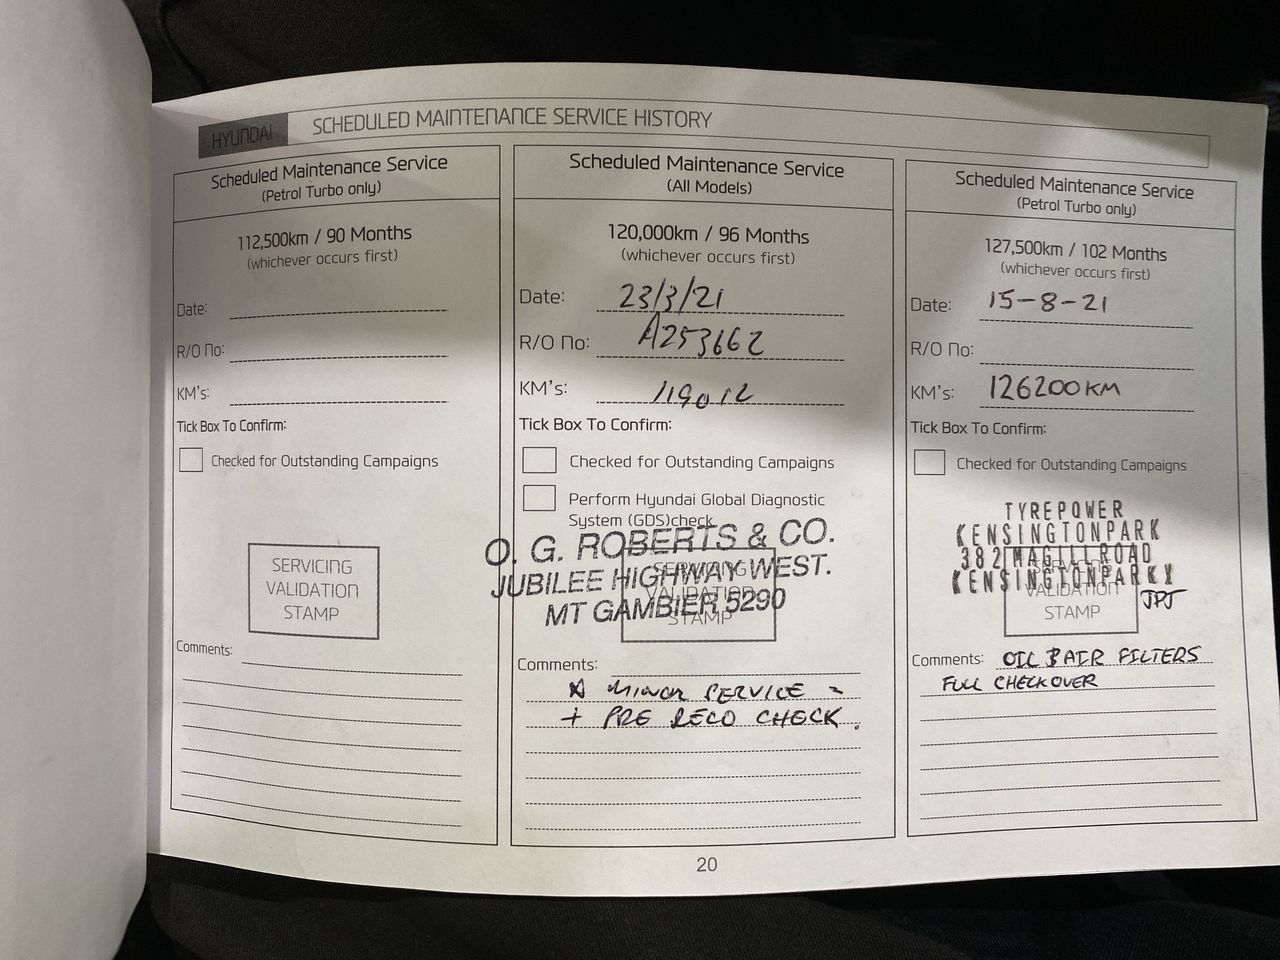 HYUNDAI
SCHEDULED MAINTENANCE SERVICE HISTORY
Scheduled Maintenance Service
(Petrol Turbo only)
112,500km / 90 Months
(whichever occurs first)
Date:
R/O No:
KM's:
Tick Box To Confirm:
Checked for Outstanding Campaigns
SERVICING
VALIDATION
STAMP
Comments:
Scheduled Maintenance Service
(All Models)
120,000km / 96 Months
(whichever occurs first)
Date: 23/3/21
R/O No: A253662
KM's: 119012
Tick Box To Confirm:
Checked for Outstanding Campaigns
Perform Hyundai Global Diagnostic
System (GDS)check
O. G. ROBERTS & CO.
JUBILEE HIGHWAY WEST.
MT GAMBIER 5290
SERVICING
VALIDATION
STAMP
Comments:
MINOR SERVICE
+ PRE RECO CHECK.
Scheduled Maintenance Service
(Petrol Turbo only)
127,500km / 102 Months
(whichever occurs first)
Date: 15-8-21
R/O No:
KM's: 126200KM
Tick Box To Confirm:
Checked for Outstanding Campaigns
TYREPOWER
KENSINGTONPARK
382 MAGILL ROAD
KENSINGTONPARK
SERVICING
VALIDATION
STAMP
Comments: OIL & AIR FILTERS
FULL CHECKOVER
20